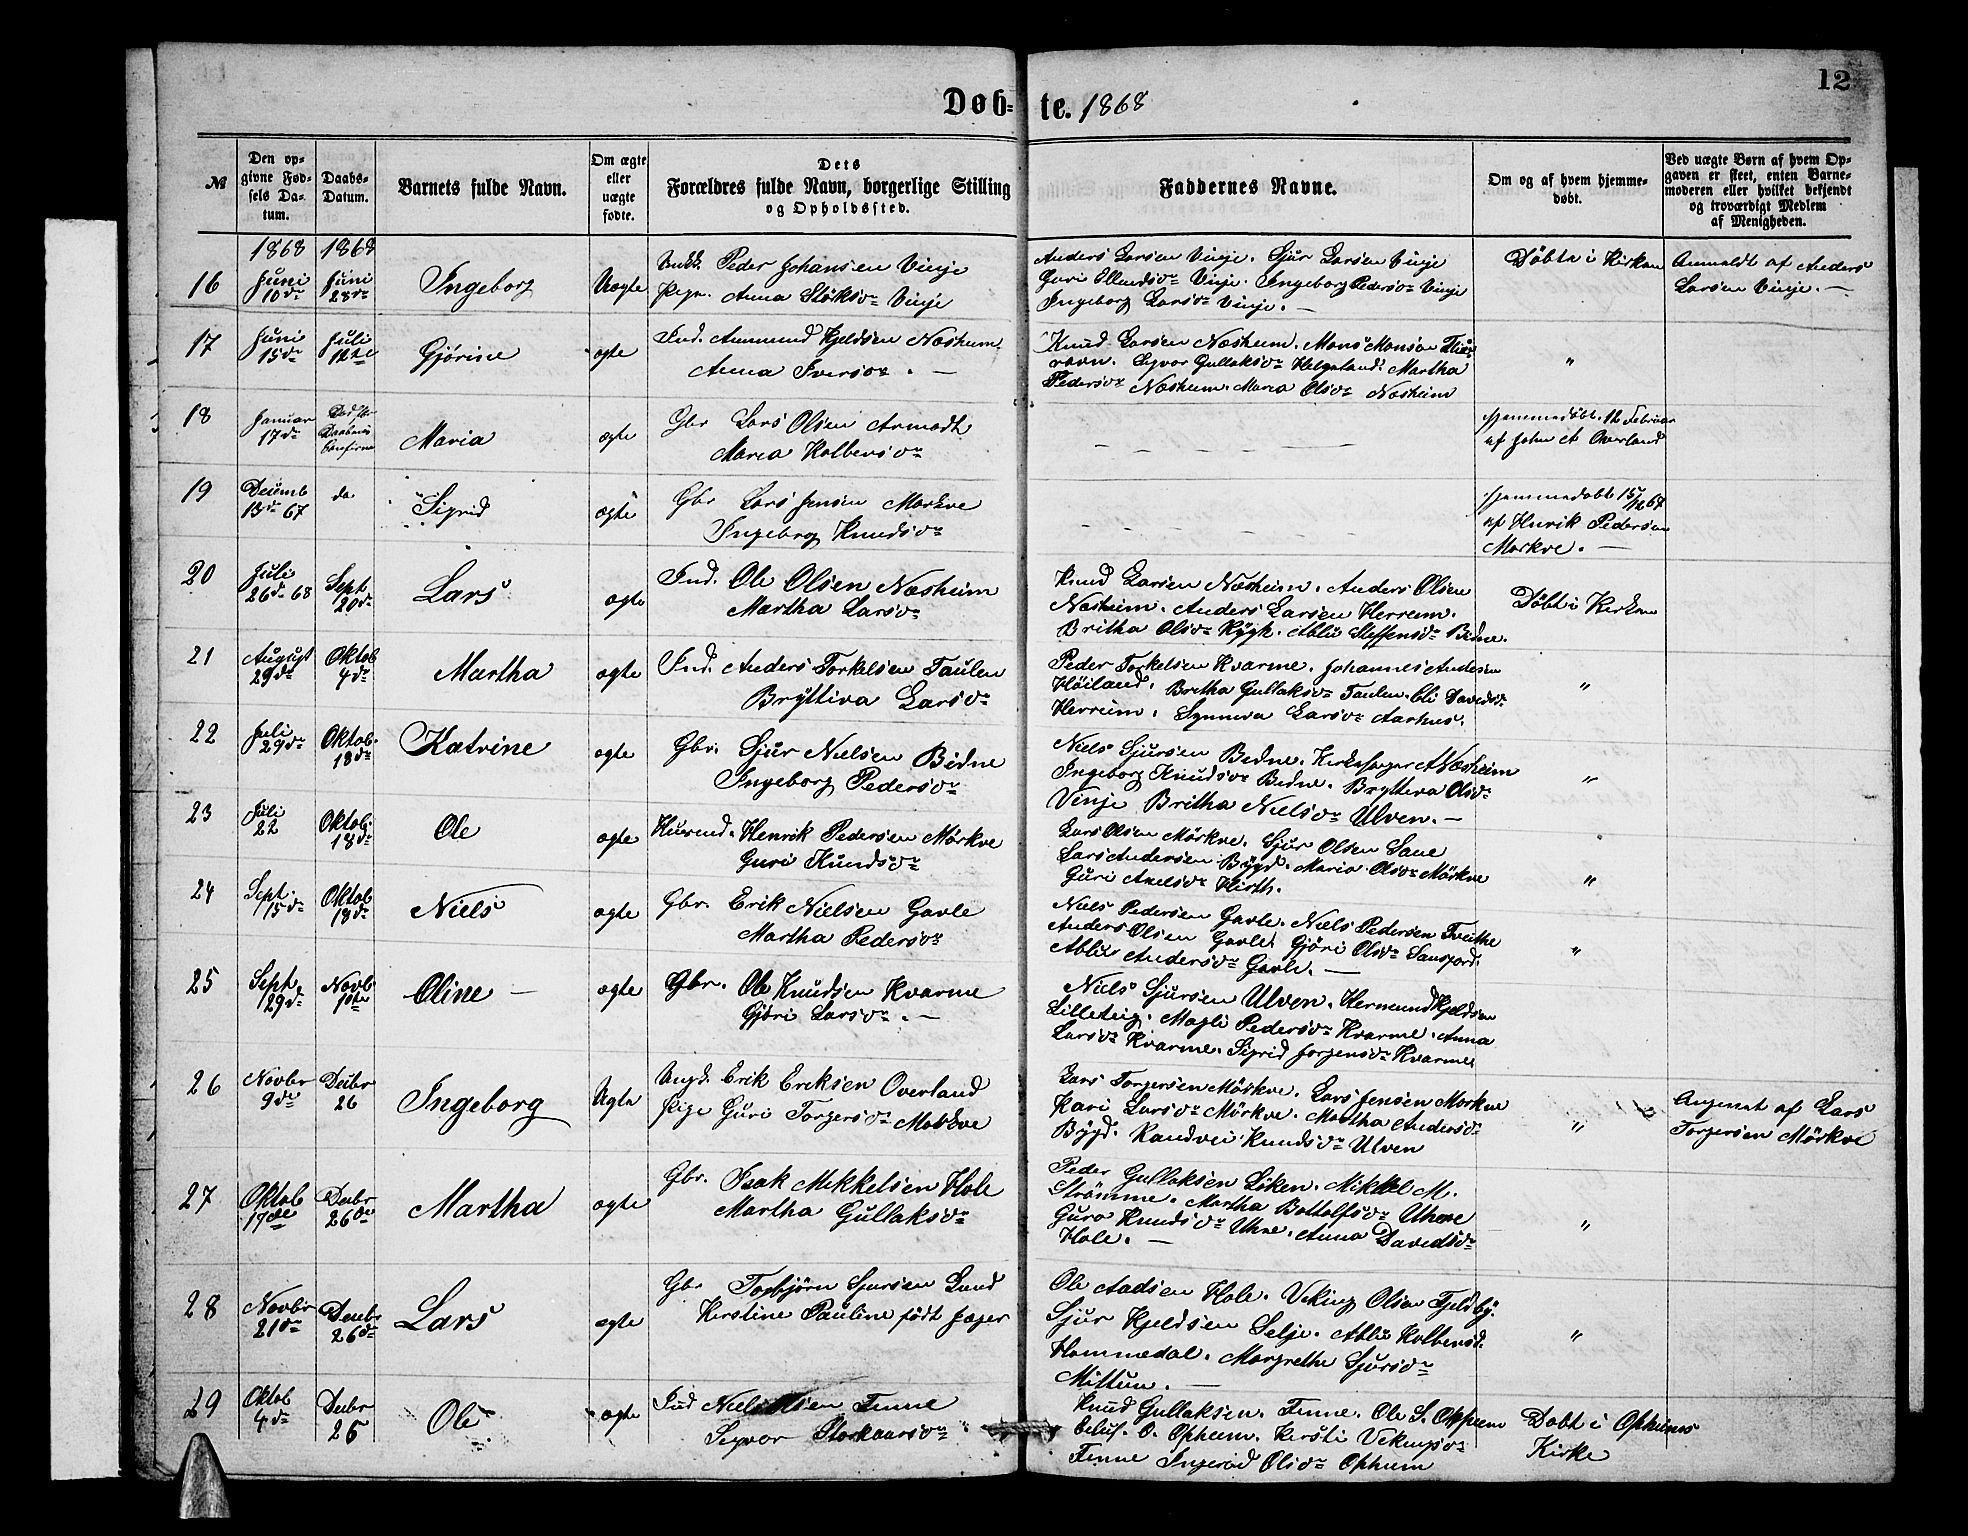 12
Døb-te. 1868
№
Den op-
givne Fød-
sels Da-
tum.
Daabs-
Datum.
Barnets fulde Navn.
Om ægte
eller
uægte
fødte.
Dets
Forældres fulde Navn, borgerlige Stilling
og Opholdssted.
Faddernes Navne.
Om og af hvem hjemme-
døbt.
Ved uægte Børn af hvem Op-
gaven er skeet, enten Barne-
moderen eller hvilket bekjendt
og troværdigt Medlem
af Menigheden.
1868 1868
16 Juni 10de Juni 28de Ingeborg Uægte
Peder Johansen Vinje
Pige. Anna Vinje
Anders Larsen Vinje. Sjur Larsen Vinje
Guri Vinje. Ingeborg Pedersdr Vinje
Ingeborg Larsdr Vinje. —
Døbte i Kirken
Anmeldt af Anders
Larsen Vinje. —
17 Juni 15de Juli 12te Gjørine ægte
Ind. Aamund Kjeldsen Næsheim
Anna Iversdr. —
Knud Larsen Næsheim. Mons Monsen
Sygvor Gullaksdr Helgeland. Martha
Pedersdr Næsheim. Maria Olsdr Næsheim
"
18 Januar 17de Død før Daabens Confirm Maria ægte
Gbr Lars Olsen
Maria Kolbensdr
Hjemmedøbt 12 Februar
af John A Overland
19 Decemb 13de 67 do Sigrid ægte
Gbr Lars Jensen Mørkve
Ingeborg Knudsdr
Hjemmedøbt 15/12 67
af Henrik Pedersen
Mørkve. —
20 Juli 26de 68 Sept 20de Lars ægte
Ind. Ole Olsen Næsheim
Martha Larsdr
Knud Larsen Næsheim. Anders Olsen
Næsheim. Anders Larsen Herreim.
Britha Olsdr Rygh. Ablu Steffensdr Bidne.
Døbt i Kirken
21 August 29de Oktob 4de Martha ægte
Ind. Anders Torkelsen Taulen
Bryttiva Larsdr
Peder Torkelsen Kvarme. Johannes Andersen
Høiland. Britha Gullaksdr Taulen. Eli Davidsdr
Herreim. Synneva Larsdr Aarhus.
"
22 Juli 29de Oktob. 18de Katrine ægte
Gbr. Sjur Nielsen Bidne
Ingeborg Pedersdr
Niels Sjursen Bidne. Kirkesanger A Næsheim
Ingeborg Knudsdr Bidne. Bryttiva Olsdr
Vinje Britha Nielsdr Ulven. —
"
23 Juli 22 Oktob. 18de Ole ægte
Huusmd. Henrik Pedersen Mørkve
Guri Knudsdr
Lars Olsen Mørkve. Sjur Olsen Saue
Lars Andersen Bygd. Maria Olsdr Mørkve
Guri Axelsdr Hirth.
"
24 Sept. 15de Oktob 18de Niels ægte
Gbr. Erik Nielsen Gavle
Martha Pedersdr
Niels Pedersen Gavle. Niels Pedersen Tveithe
Anders Olsen Gavle. Gjøri Olsdr
Ablu Andersdr Gavle. —
"
25 Sept. 29de Novb 1ste Oline — ægte
Gbr. Ole Knudsen Kvarme
Gjøri Larsdr. —
Niels Sjursen Ulven. Hermund Kjeldsen
Lilleteig. Magli Pedersdr Kvarme. Anna
Larsdr Kvarme. Sigrid Jorgensdr Kvarme
26 Novbr 9de Decbr 26 Ingeborg Uægte
Ungk. Erik Eriksen Overland
Pige Guri Torgersdr Mørkve
Lars Torgersen Mørkve. Lars Jensen Mørkve
Kari Larsdr Mørkve. Martha Andersdr
Bygd. Randvei Knudsdr Ulven
"
Angivet af Lars
Torgersen Mørkve
27 Oktob 17de Decbr 26de Martha ægte
Gbr. Isak Mikkelsen Hole
Martha Gullaksdr
Peder Gullaksen Løken. Mikkel M.
Strømme. Martha Bottolfsdr Uhne
Guro Knudsdr Uhne. Anna Davidsdr
Hole. —
"
28 Novbr 21de Decbr 26de Lars ægte
Gbr Torbjørn Sjursen Lund
Kirstine Pauline født Jæger
Ole Aadsen Hole. Viking Olsen Tjeldby.
Sjur Kjeldsen Selje. Ablu Kolbensd.
Hommedal. Margrethe Sjursdr
Mittun. —
"
29 Oktob 4de Decbr 26 Ole ægte
Ind Niels Olsen Finne
Sygvor Storkaarsdr
Knud Gullaksen. Finne. Ole S. Opheim
Eiluf. O. Opheim. Kersti Vikingsdr
Finne Ingerød Olsdr Opheim
Døbt i Opheims
Kirke